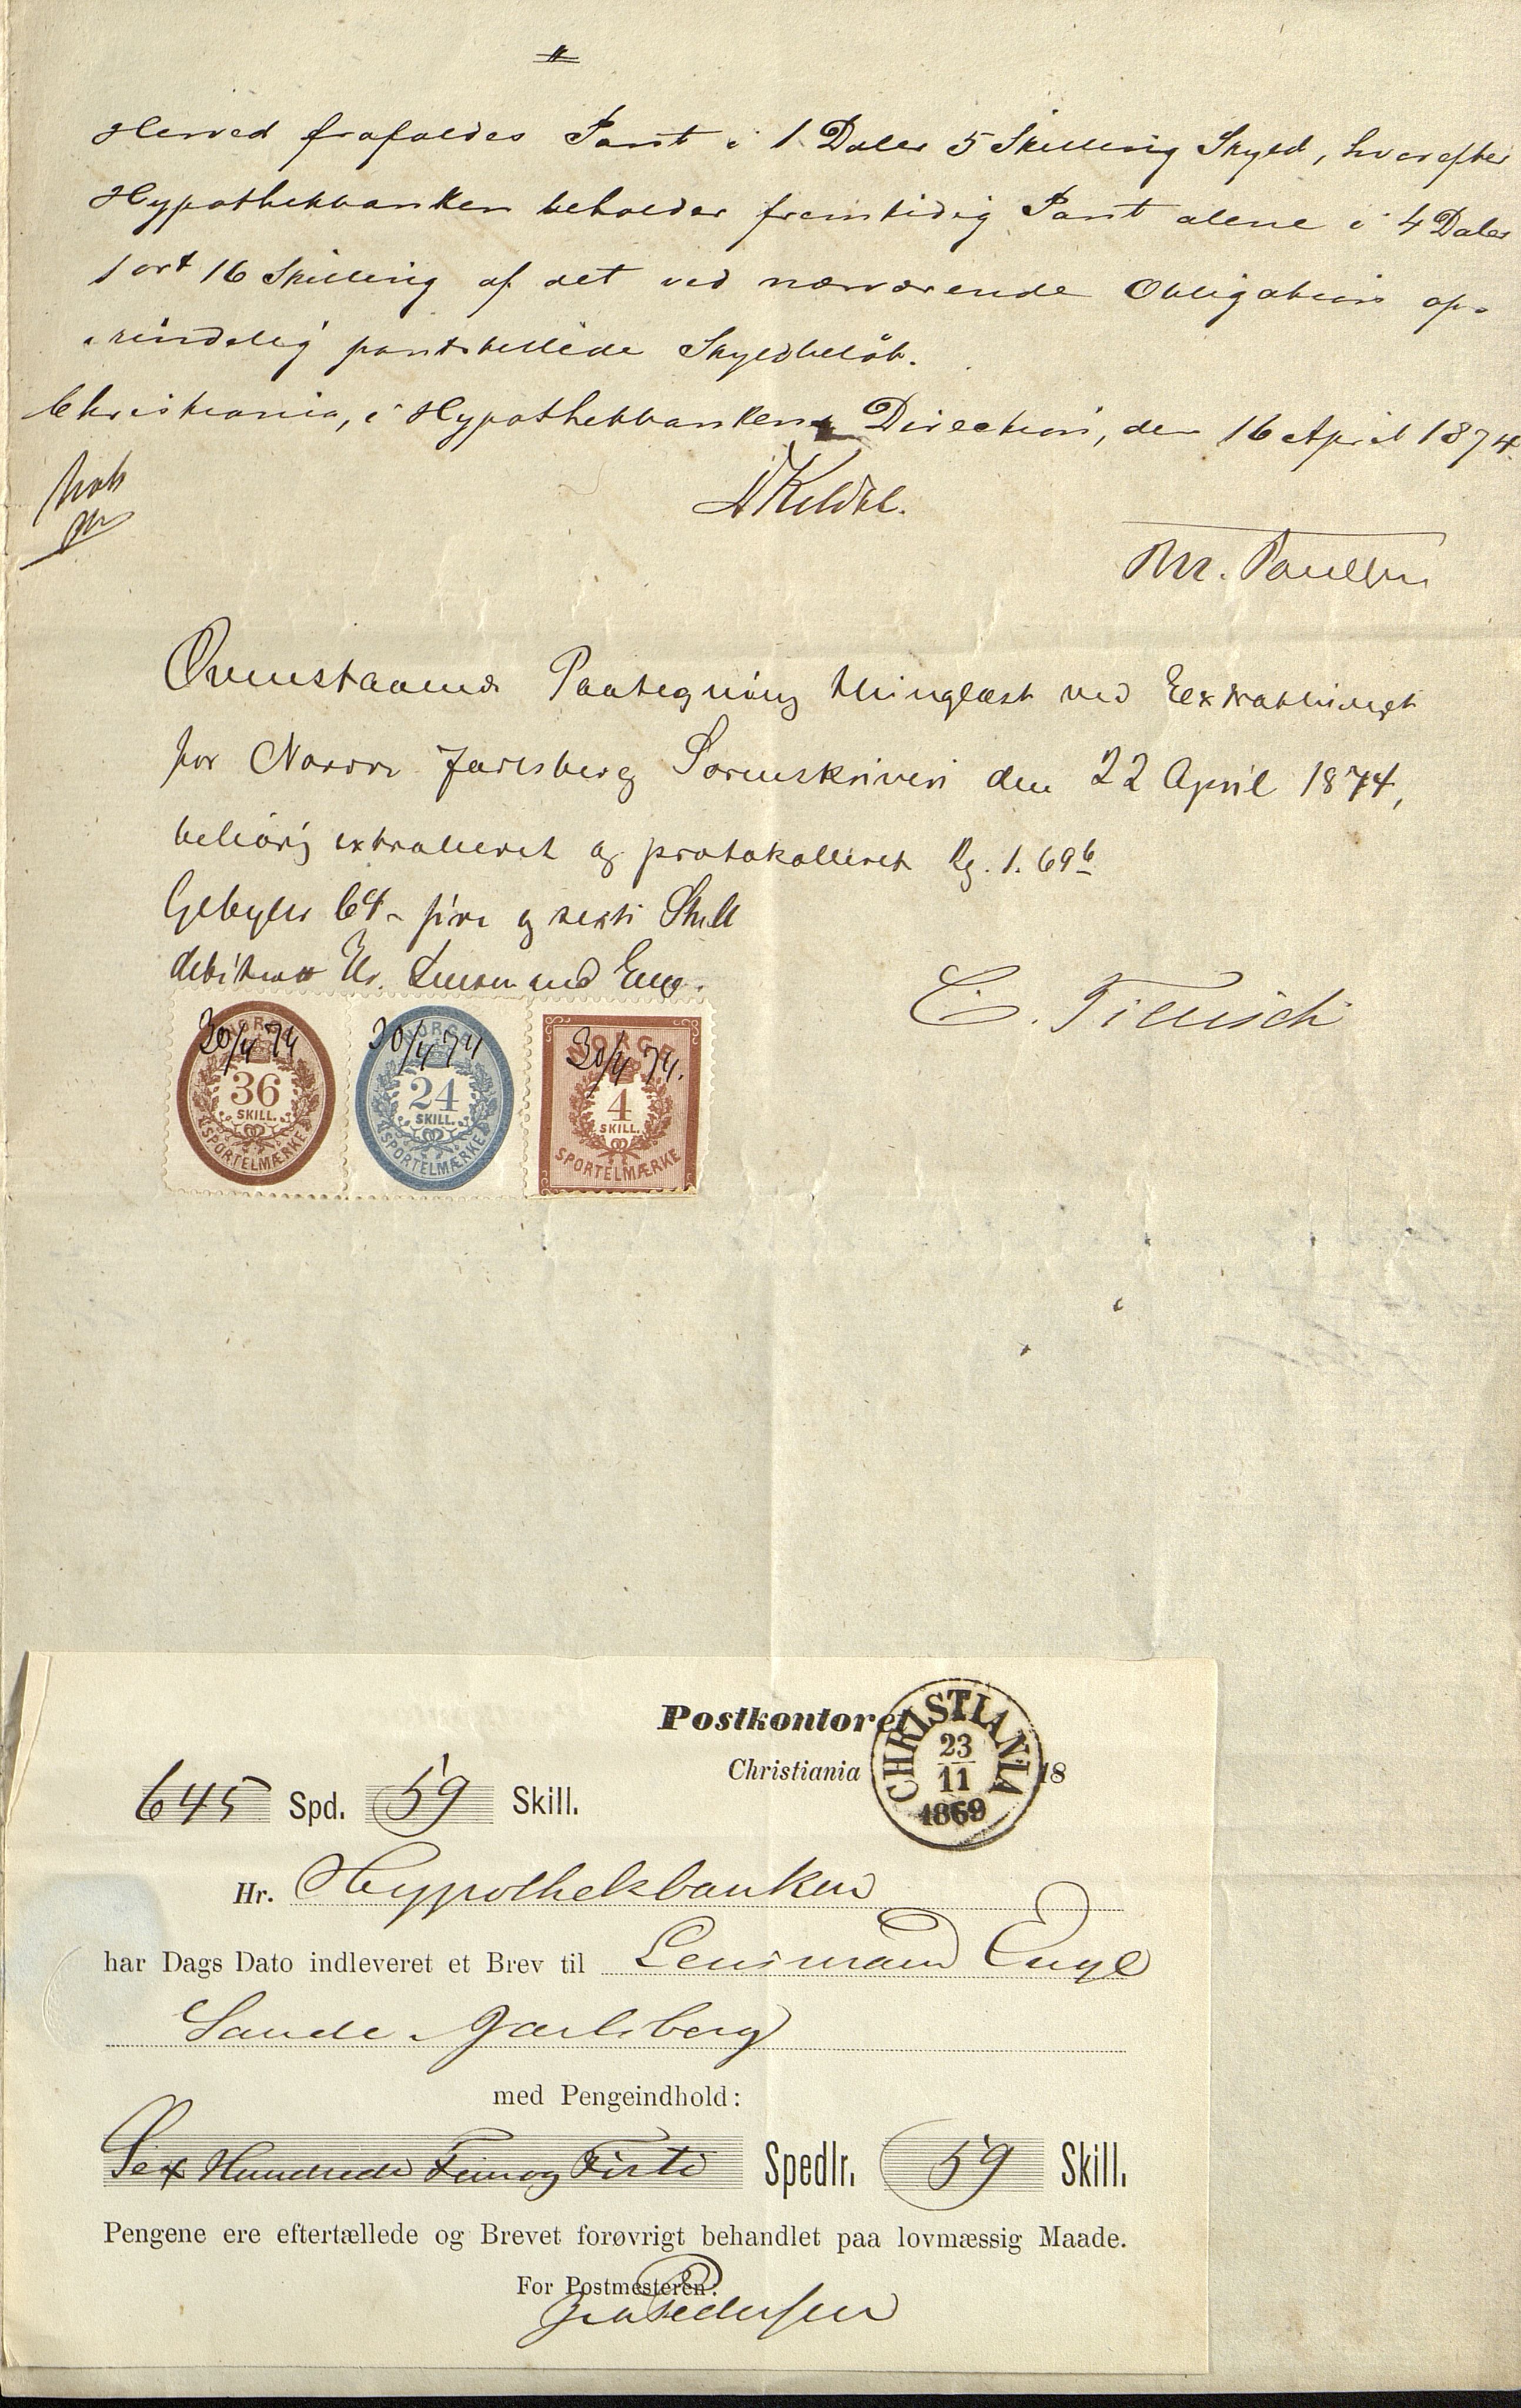 Herved frafaldes Pant i 1 Daler 5 Skilling Skyld, hvorefter
Hypothekbanken beholder fremtidig Pant alene i 4 Daler
1 ort 16 Skilling af det ved nærværende Obligation op-
rindelig pantstillede Skyldbeløb.
Christiania, i Hypothekbankens Direction, den 16 April 1874.
Ovenstaaende Paategning thinglæst ved Extrathinget
for Nordre Jarlsberg Sorenskriveri den 22 April 1874,
behørig extraheret og protokolleret Rg. 1. 69b
Gebyhr 64 - fire og sexti Skill
debiteret Hr. Lensmand Enge.
C. Fienisch
30/4 74
NORGE
36
SKILL.
SPORTELMÆRKE
30/4 74
NORGE
24
SKILL.
SPORTELMÆRKE
30/4 74.
NORGE
4
SKILL.
SPORTELMÆRKE
Postkontoret
Christiania 18
CHRISTIANIA
23
11
1869
645 Spd. 59 Skill.
Hr. Hypothekbanken
har Dags Dato indleveret et Brev til Lensmand Enge
Sande Jarlsberg
med Pengeindhold:
Sex Hundrede Fem og Firti Spedlr. 59 Skill.
Pengene ere eftertællede og Brevet forøvrigt behandlet paa lovmæssig Maade.
For Postmesteren:
Pedersen